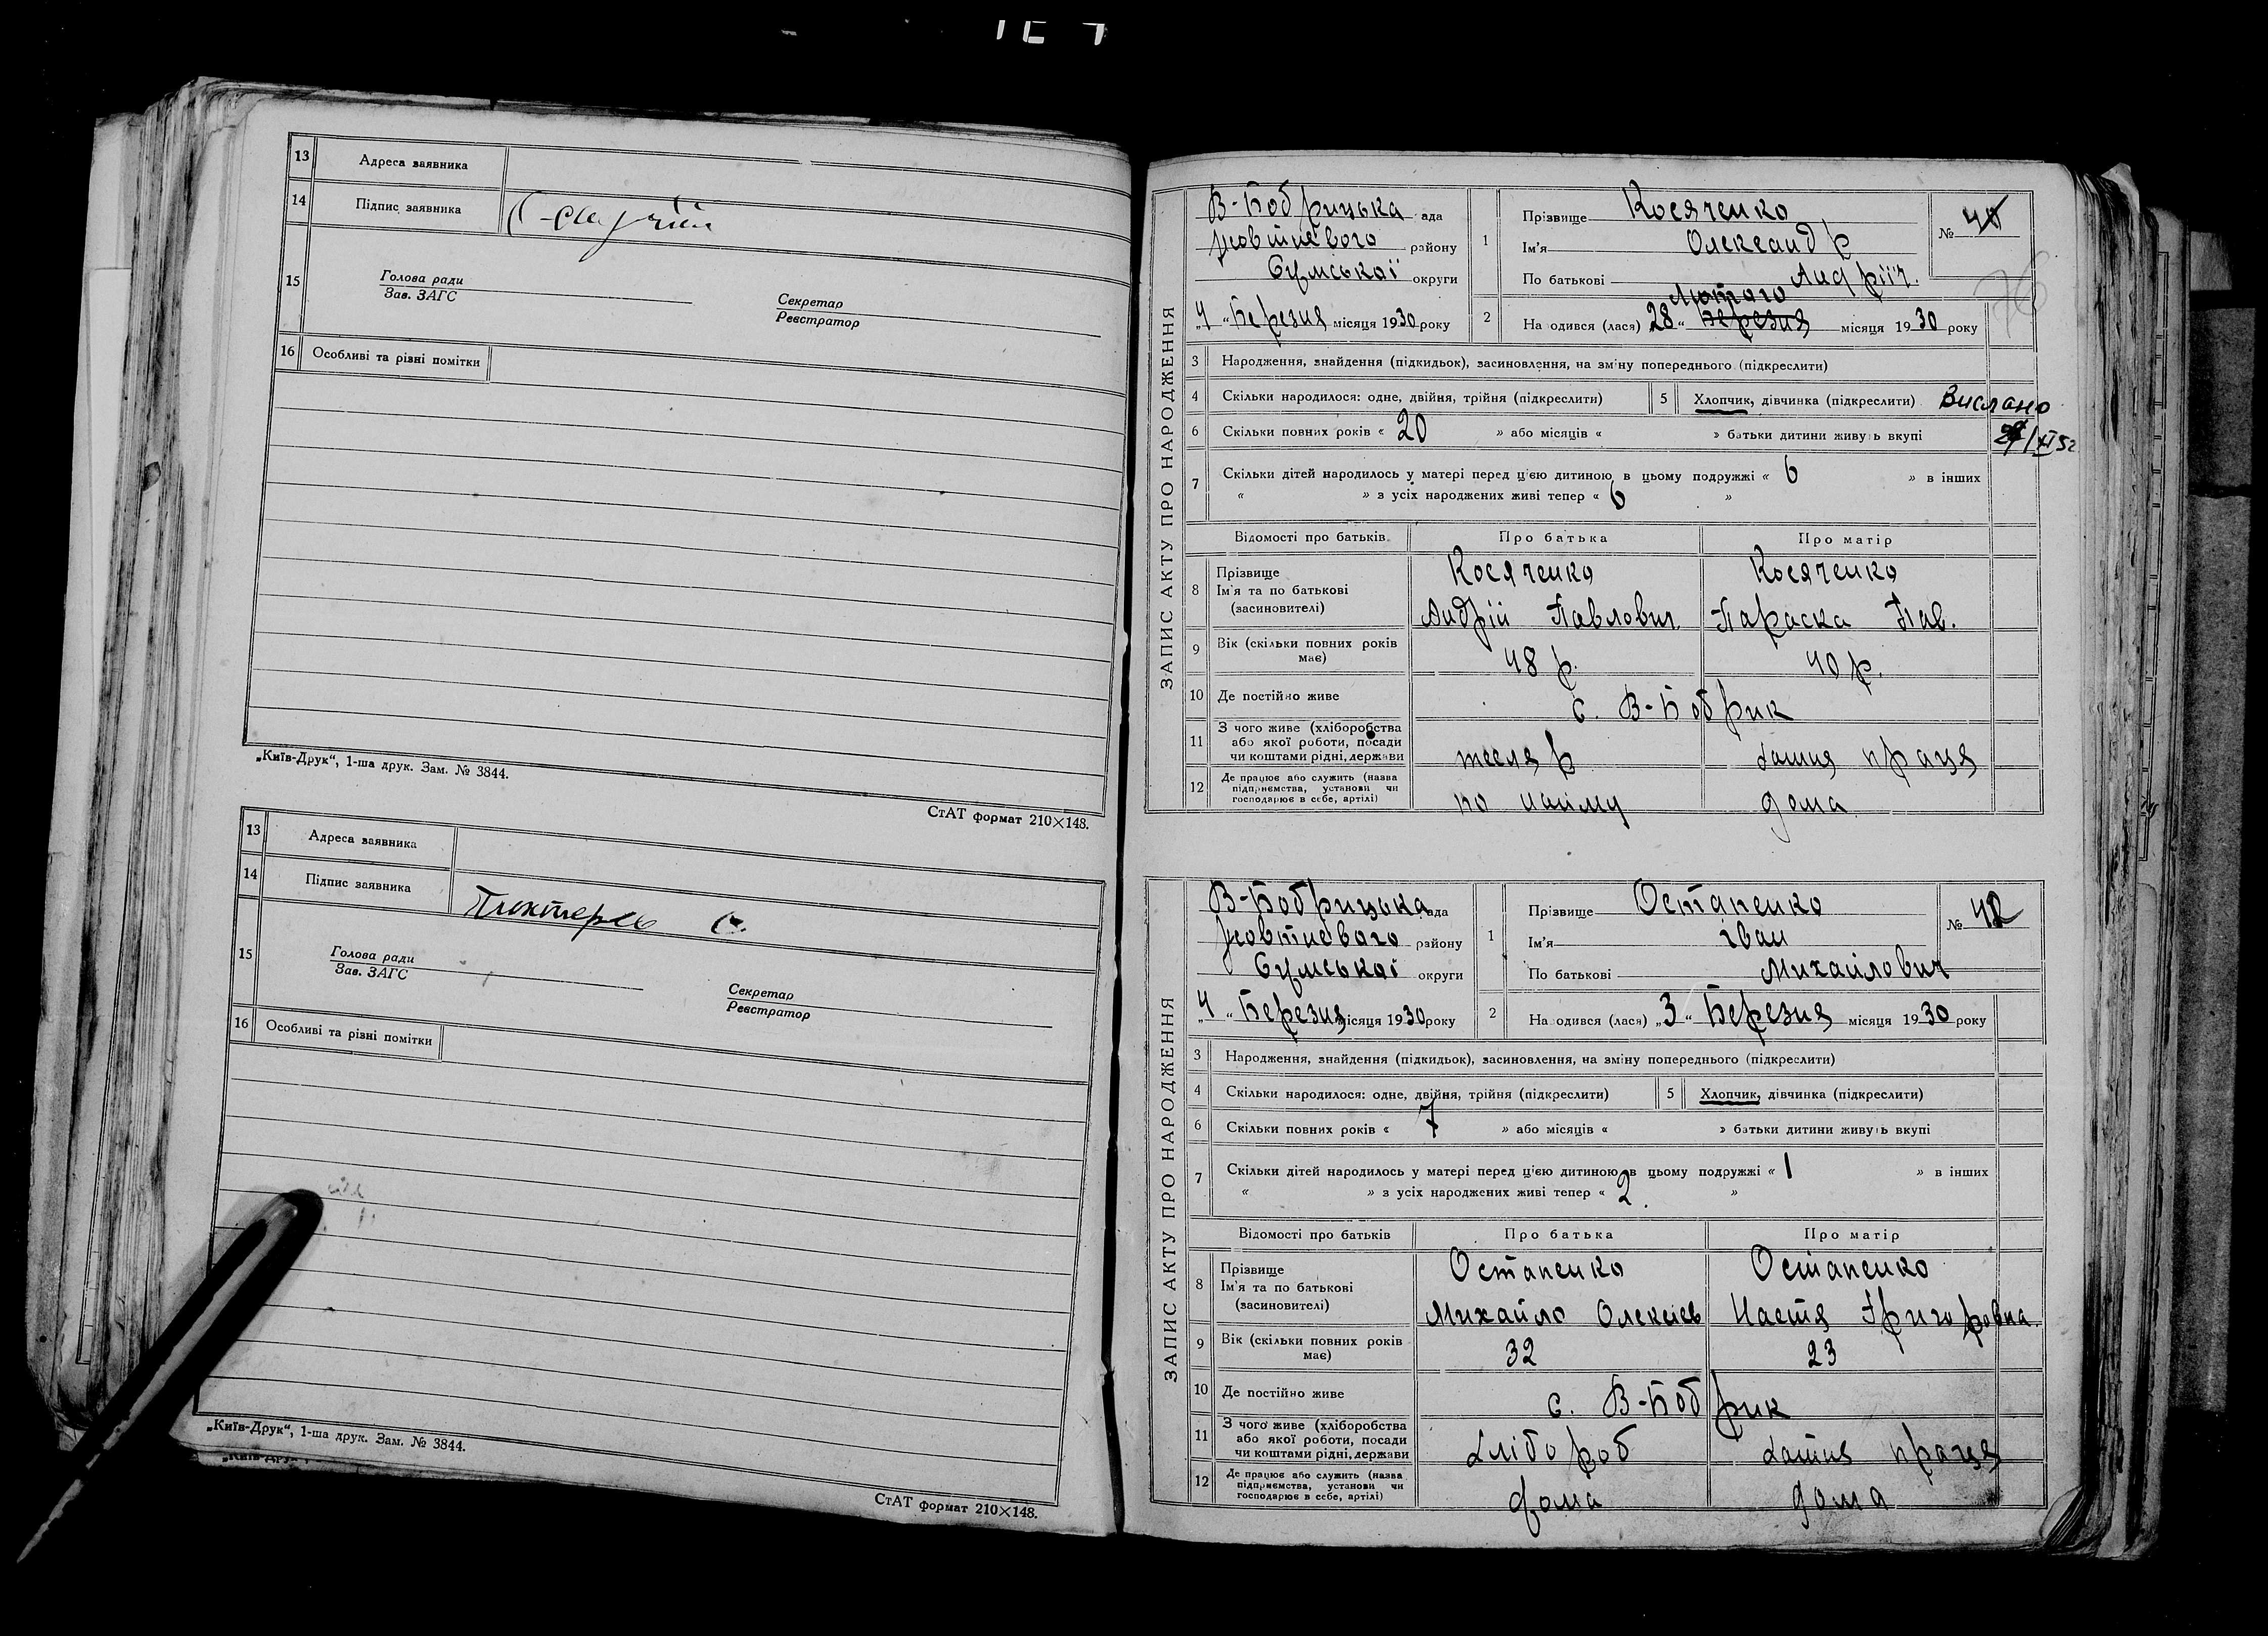 13 Адреса заявника
14 Підпис заявника
15 Голова ради
Зав. ЗАГС
Секретар
Реєстратор
16 Особливі та різні помітки
„Київ-Друк“, 1-ша друк. Зам. № 3844.
СтАТ формат 210×148.
13 Адреса заявника
14 Підпис заявника
15 Голова ради
Зав. ЗАГС
Секретар
Реєстратор
16 Особливі та різні помітки
„Київ-Друк“, 1-ша друк. Зам. № 3844.
СтАТ формат 210×148.
ЗАПИС АКТУ ПРО НАРОДЖЕННЯ
В-Бобрицька ада
Жовтневого району
Сумської округи
„4“ Березня місяця 1930 року
1 Прізвище Косяченко
Ім'я Олександр
По батькові Андрійч.
№
76
Лютого
2 На одився (лася) 28 “ Березня місяця 1930 року
3 Народження, знайдення (підкидьок), засиновлення, на зміну попереднього (підкреслити)
4 Скільки народилося: одне, двійня, трійня (підкреслити)
5 Хлопчик, дівчинка (підкреслити)
Вислано
6 Скільки повних років « 20 » або місяців « » батьки дитини живуть вкупі
7 Скільки дітей народилось у матері перед цією дитиною в цьому подружжі « 6 » в інших
« » з усіх народжених живі тепер « 6 »
Відомості про батьків Про батька Про матір
8 Прізвище Косяченко Косяченко
Ім'я та по батькові
(засиновителі) Андрій Павлович Параска Пав.
9 Вік (скільки повних років має) 48 р. 40 р.
10 Де постійно живе с. В-Бобрик
11 З чого живе (хліборобства
або якої роботи, посади
чи коштами рідні, держави тесляр хатня праця
12 Де працює або служить (назва
підприємства, установи чи
господарює в себе, артілі) по найму дома
ЗАПИС АКТУ ПРО НАРОДЖЕННЯ
В-Бобрицька ада
Жовтневого району
Сумської округи
„4“ Березня місяця 1930 року
1 Прізвище Остапенко
Ім'я Іван
По батькові Михайлович
№ 42
2 На одився (лася) „3“ Березня місяця 1930 року
3 Народження, знайдення (підкидьок), засиновлення, на зміну попереднього (підкреслити)
4 Скільки народилося: одне, двійня, трійня (підкреслити)
5 Хлопчик, дівчинка (підкреслити)
6 Скільки повних років « 7 » або місяців « » батьки дитини живуть вкупі
7 Скільки дітей народилось у матері перед цією дитиною в цьому подружжі « 1 » в інших
« » з усіх народжених живі тепер « 2. »
Відомості про батьків Про батька Про матір
8 Прізвище Остапенко Остапенко
Ім'я та по батькові
(засиновителі) Михайло Олексієв Настя Григоровна.
9 Вік (скільки повних років має) 32 23
10 Де постійно живе с. В-Бобрик
11 З чого живе (хліборобства
або якої роботи, посади
чи коштами рідні, держави хлібороб хатня праця
12 Де працює або служить (назва
підприємства, установи чи
господарює в себе, артілі) дома дома